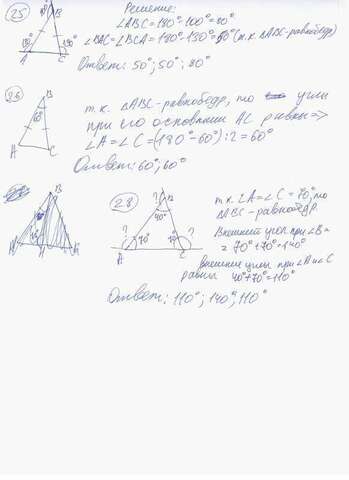 25
Решение:
∠ABC=180°-100°=80°
∠BAC=∠BCA=180°-130°=50° (т.к. △ABC-равнобедр)
Ответ: 50°; 50°; 80°
A
B
C
130°
26
т.к. △ABC-равнобедр, то углы
при его основании AC равны=>
∠A=∠C=(180°-60°):2=60°
Ответ: 60°; 60°
B
60°
A
C
B
28
B
?
40°
?
70°
70°
?
A
C
т.к. ∠A=∠C=70°, то
△ABC-равнобедр.
Внешнего угол при ∠B=
=70°+70°=140°
Внешние углы при ∠A и ∠C
равны 40°+70°=110°
Ответ: 110°; 140°; 110°